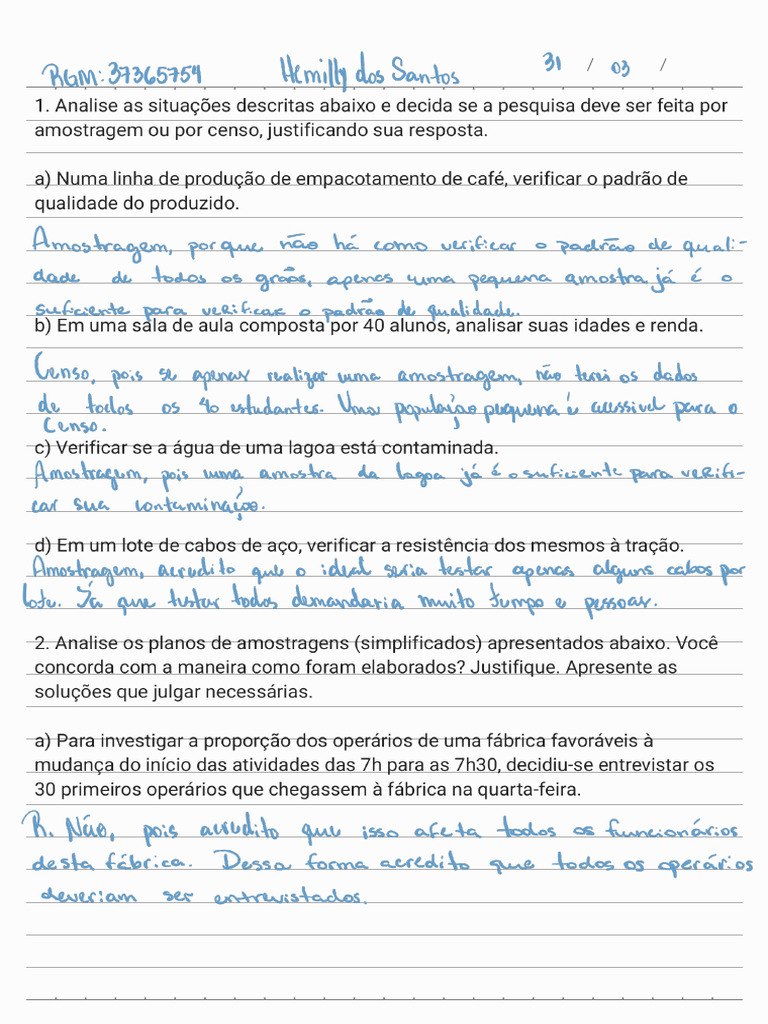 RGM: 37365754 Hemilly dos Santos 31 / 03 /
1. Analise as situações descritas abaixo e decida se a pesquisa deve ser feita por
amostragem ou por censo, justificando sua resposta.
a) Numa linha de produção de empacotamento de café, verificar o padrão de
qualidade do produzido.
Amostragem, porque não há como verificar o padrão de quali-
dade de todos os grãos, apenas uma pequena amostra já é o
suficiente para verificar o padrão de qualidade.
b) Em uma sala de aula composta por 40 alunos, analisar suas idades e renda.
Censo, pois se apenas realizar uma amostragem, não terei os dados
de todos os 40 estudantes. Uma população pequena é acessível para o
Censo.
c) Verificar se a água de uma lagoa está contaminada.
Amostragem, pois uma amostra da lagoa já é o suficiente para verifi-
car sua contaminação.
d) Em um lote de cabos de aço, verificar a resistência dos mesmos à tração.
Amostragem, acredito que o ideal seria testar apenas alguns cabos por
lote. Já que testar todos demandaria muito tempo e pessoas.
2. Analise os planos de amostragens (simplificados) apresentados abaixo. Você
concorda com a maneira como foram elaborados? Justifique. Apresente as
soluções que julgar necessárias.
a) Para investigar a proporção dos operários de uma fábrica favoráveis à
mudança do início das atividades das 7h para as 7h30, decidiu-se entrevistar os
30 primeiros operários que chegassem à fábrica na quarta-feira.
R. Não, pois acredito que isso afeta todos os funcionários
desta fábrica. Dessa forma acredito que todos os operários
deveriam ser entrevistados.